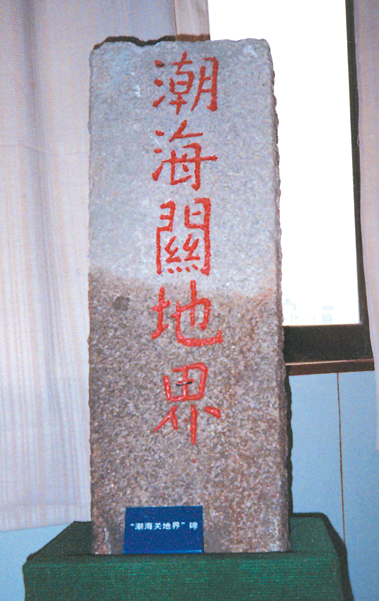 潮海關地界
“潮海关地界”碑